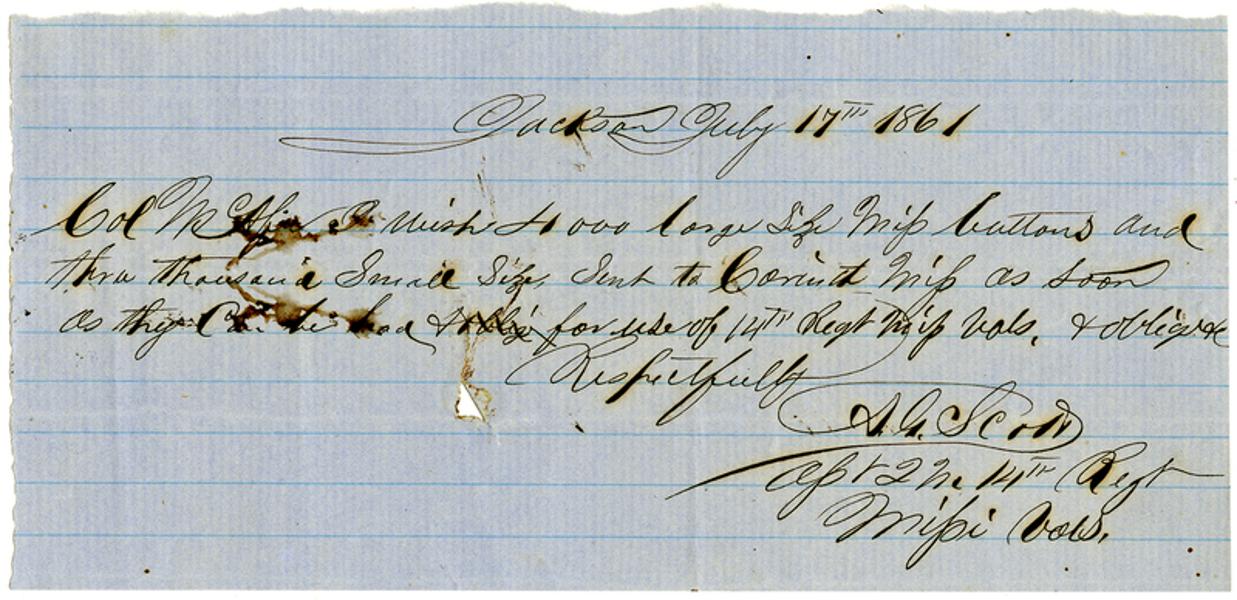 Jackson July 17th 1861
Col I wish 4000 large size Miss buttons and
three thousand Small Size, Sent to Corinth Miss as soon
as they Can be had for use of 14th Regt Miss Vols, & oblige
Respectfully
Scott
Asst 2 M. 14th Regt
Missi Vols.